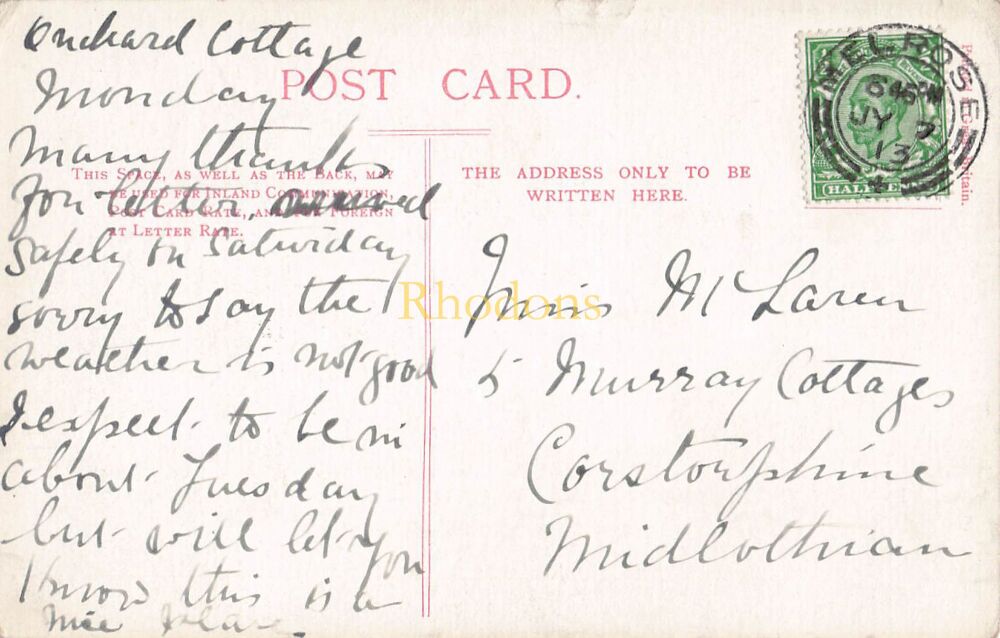 Orchard Cottage
Monday
POST CARD.
Many thanks
for letter, arrived
safely on Saturday
sorry to say the
weather is not good
I expect to be in
about Tuesday
but will let you
know this is a
nice place.
THIS SPACE, AS WELL AS THE BACK, MAY
BE USED FOR INLAND COMMUNICATION,
POST CARD RATE, AND FOR FOREIGN
AT LETTER RATE.
THE ADDRESS ONLY TO BE
WRITTEN HERE.
Miss McLaren
5 Murray Cottages
Corstorphine
Midlothian
MELROSE
6 45 PM
JY 7
13
HALFPENNY
Rhodons